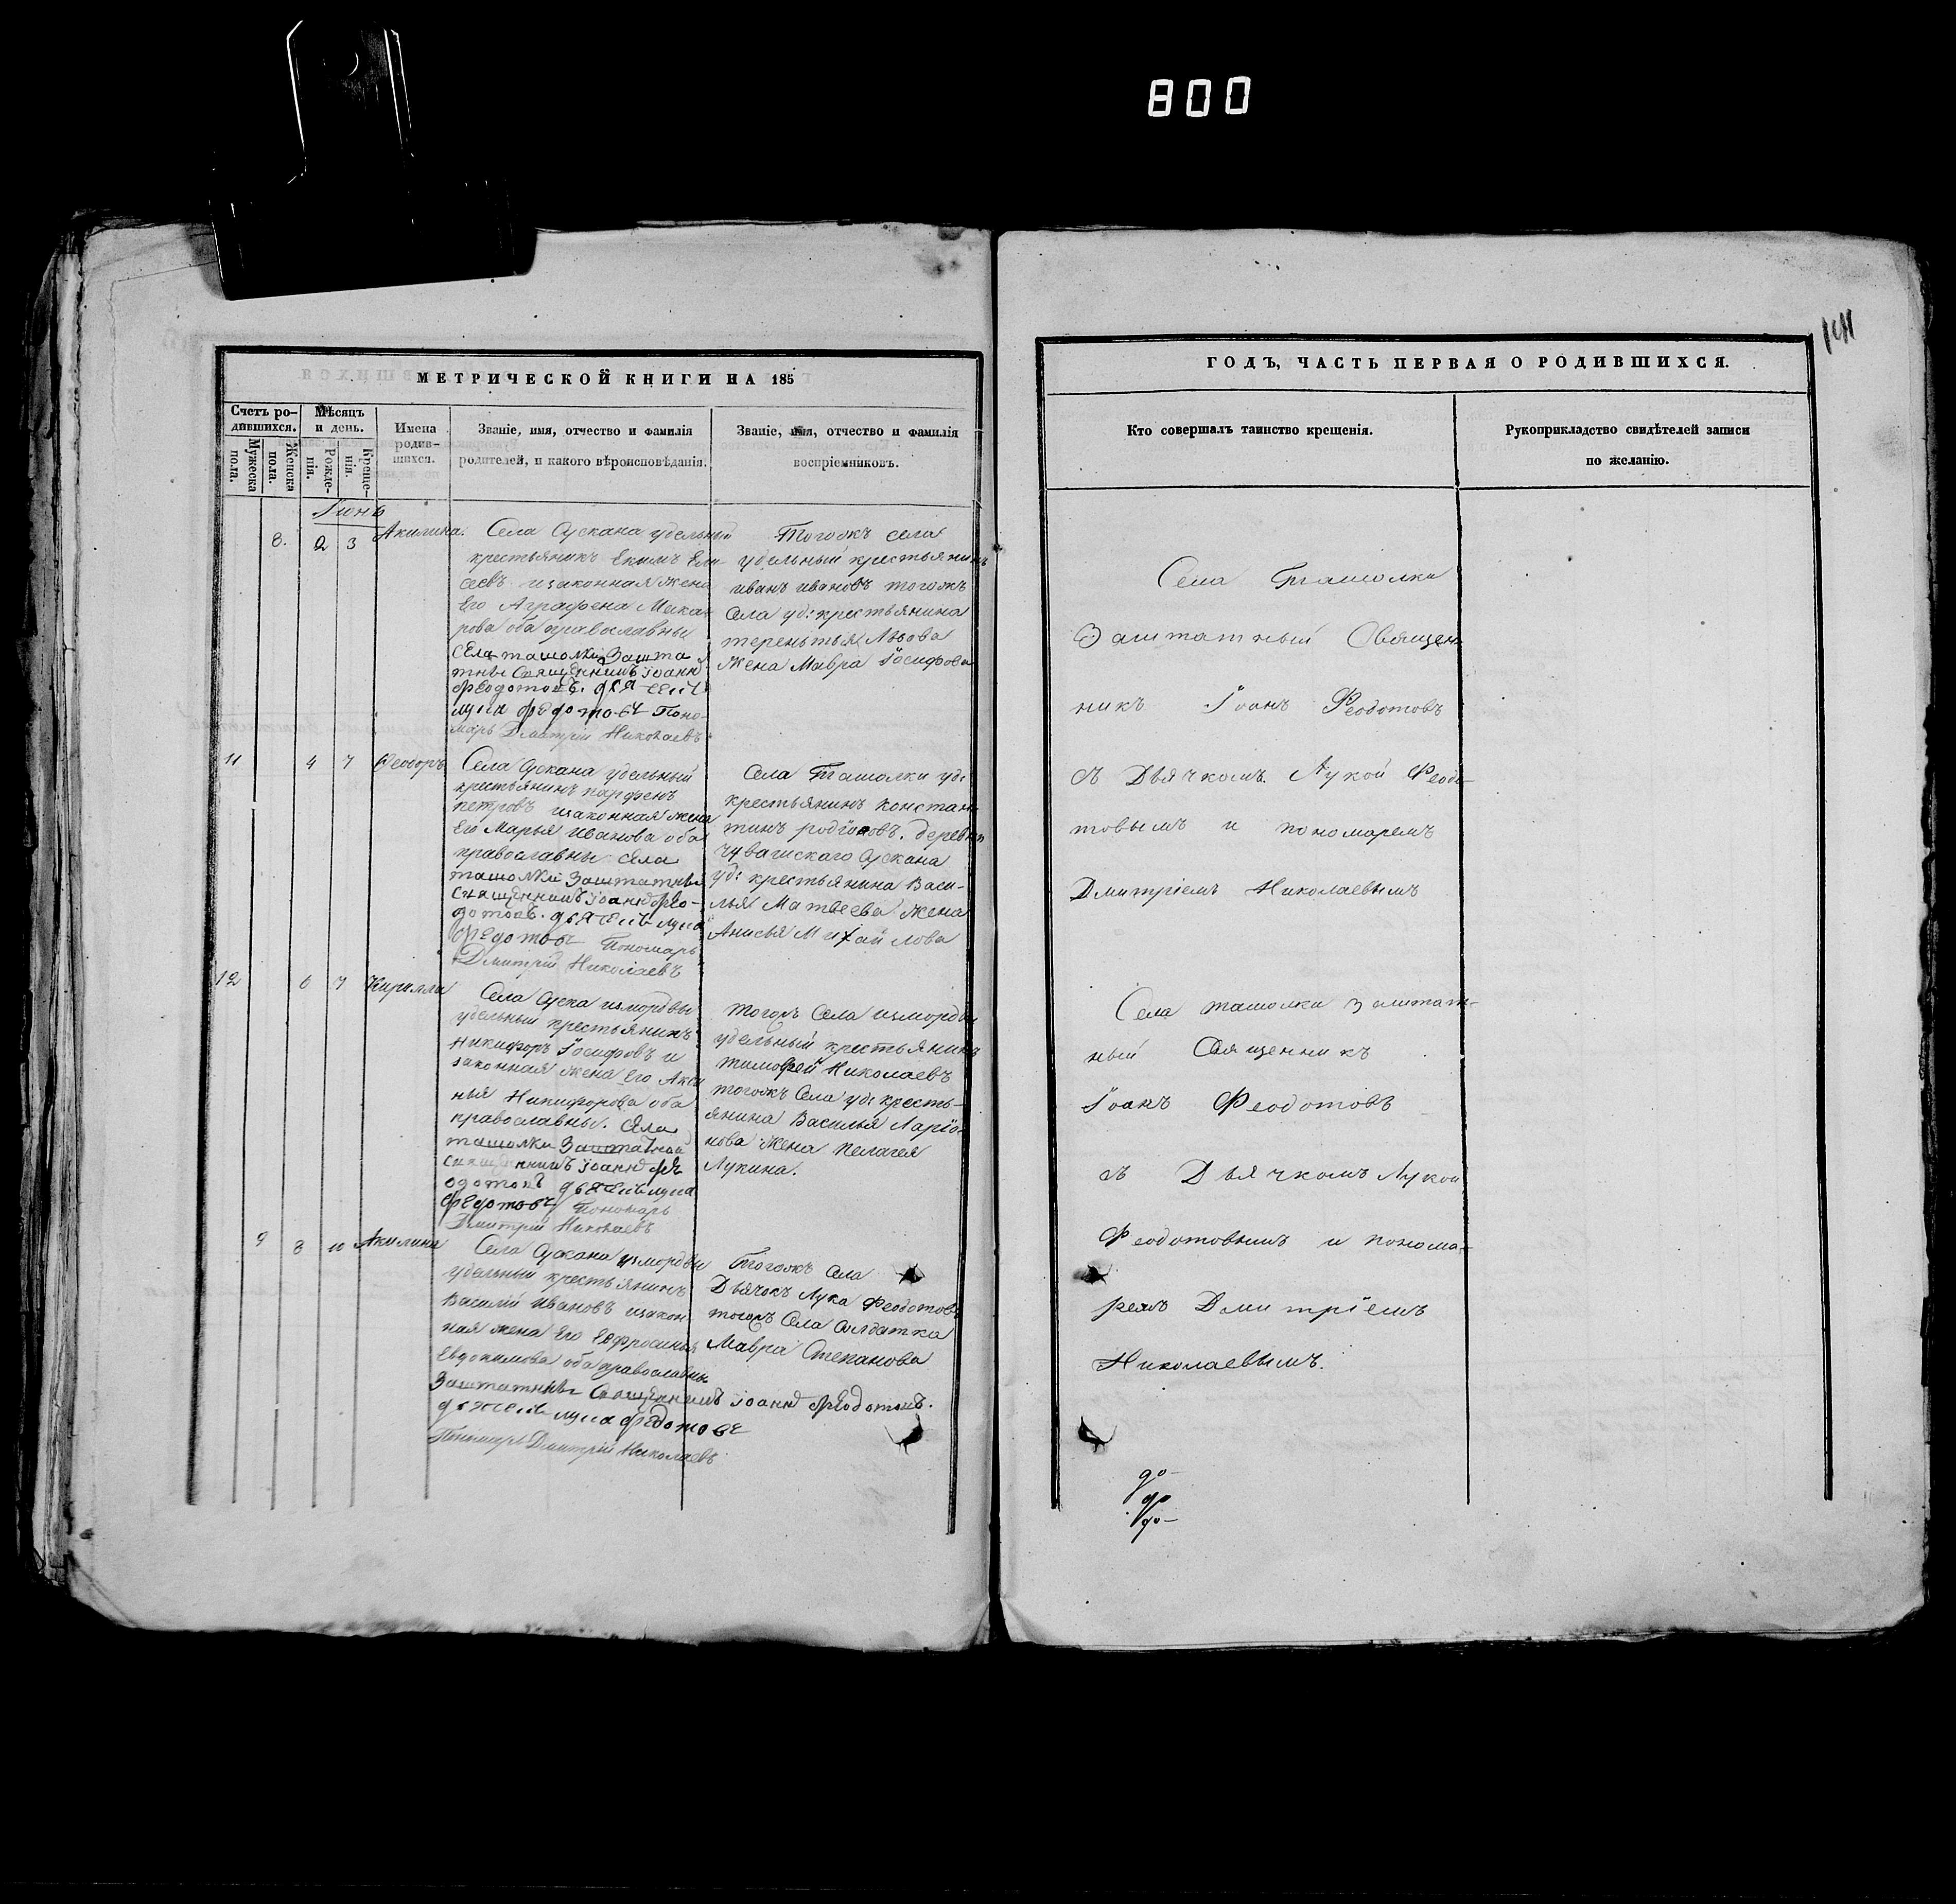 800
МЕТРИЧЕСКОЙ КНИГИ НА 185
Счетъ ро-
дившихся.
Мѣсяцъ
и день.
Имена
родив-
шихся.
Званіе, имя, отчество и фамилія
родителей, и какого вѣроисповѣданія.
Званіе, имя, отчество и фамилія
воспріемниковъ.
Мужеска
пола.
Женска
пола.
Рожде-
нія.
Креще-
нія.
Іюнь
8. 2 3 Акилина.
Села Сускана удѣльный
крестьянинъ Екимъ Ели-
сеевъ изаконная жена
Его Аграфена Мака-
рова оба православны
села ташолки Зашта
тны Священникъ іоаннъ
феодотовъ. дьячекъ
лука федотовъ Поно-
марь Дмитрій Николаевъ
Тогожъ села
удѣльный крестьянинъ
иванъ ивановъ тогожъ
Села уд: крестьянина
терентья Львова
жена Мавра Іосифова
11 4 7 Феодоръ
Села Сускана удельный
крестьянинъ парфенъ
петровъ изаконная жена
Его Марья Иванова оба
православны Села
ташолки Заштатны
священникъ іоаннъ фео-
дотовъ. дьячекъ лука
федотовъ Пономарь
Дмитрій Николаевъ
Села Ташолки уд:
крестьянинъ констан
тинъ родіоновъ. деревни
чувашскаго Сускана
уд: крестьянина Васи-
лья Матвеева жена
Анисья Михайлова
12 6 7 Кирилла
Села Суска измордвы
удельный крестьянинъ
Никифоръ Іосифовъ и
законная жена Его Акси
нья Никифорова оба
православны. Села
ташолки Заштатной
священникъ іоаннъ фе
одотовъ дьячекъ лука
федотовъ Пономарь
Дмитрій Николаевъ
тогожъ Села измордвы
удельный крестьянинъ
тимофей Николаевъ
тогожъ Села уд: кресть-
янина Василья Ларіо-
нова жена пелагея
Лукина.
9 8 10 Акилина
Села Сускана измордвы
удельный крестьянинъ
Василій Ивановъ изакон
ная жена Его Евфросинья
Евдокимова оба православны
Заштатны Священникъ іоаннъ феодотовъ.
дьячекъ лука федотовъ
Пономарь Дмитрій Николаевъ.
Тогожъ Села
Дьячокъ Лука Феодотовъ
тогожъ Села Солдатка
Мавра Степанова
141
ГОДЪ, ЧАСТЬ ПЕРВАЯ О РОДИВШИХСЯ.
Кто совершалъ таинство крещенія.
Рукоприкладство свидѣтелей записи
по желанію.
Села Ташолки
Заштатный Священ-
никъ Іоанъ Феодотовъ
съ Дьячкомъ Лукой Феодо-
товымъ и пономаремъ
Дмитріемъ Николаевымъ
Села ташолка заштат-
ный Священникъ
Іоанъ Феодотовъ
съ Дьячкомъ Лукой
Феодотовымъ и понома-
ремъ Дмитріемъ
Николаевымъ.